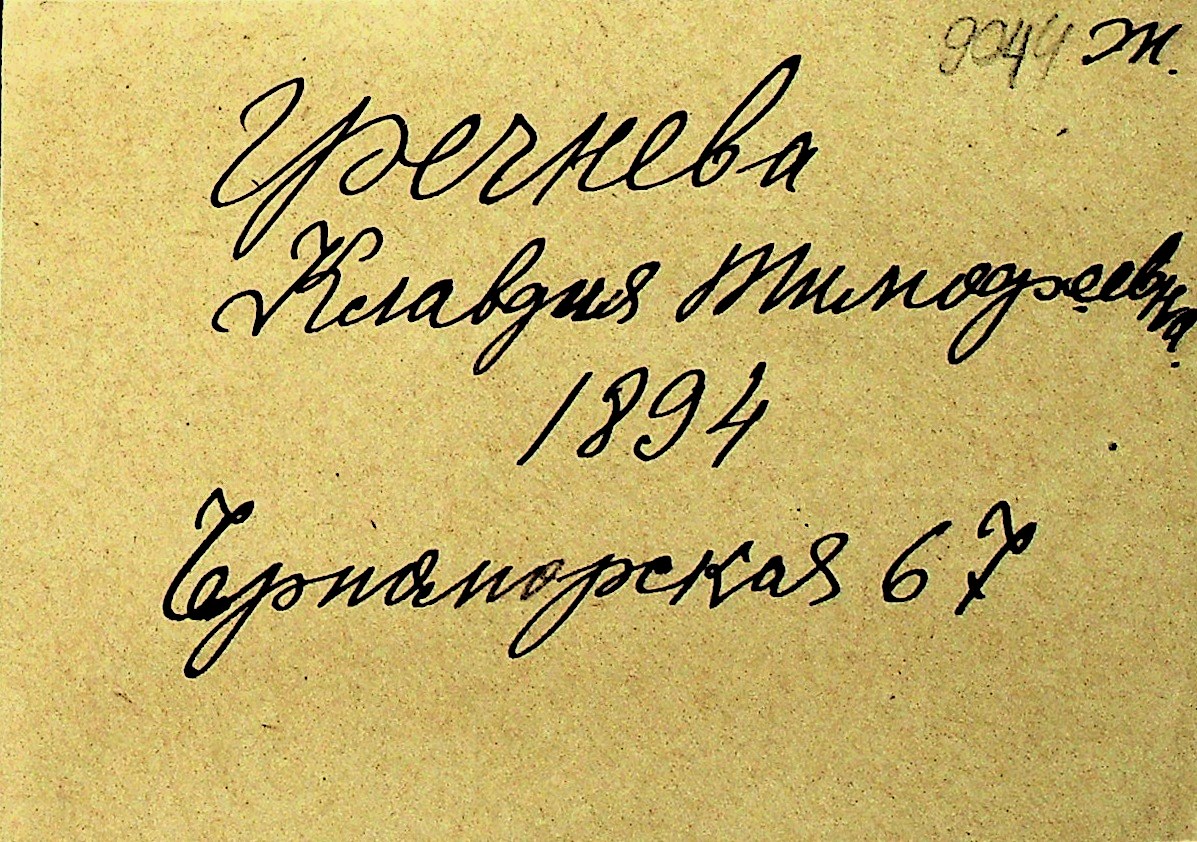 9044 ж.
Гречнева
Клавдия Тимофеевна.
1894
Черноморская 67